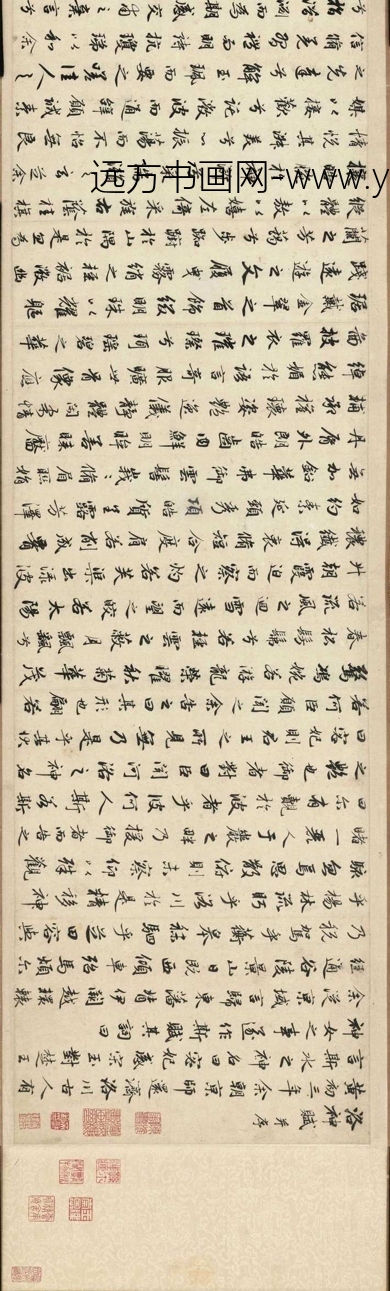 洛神賦 并序
黃初三年余朝京師還濟洛川古人有
言斯水之神名曰宓妃感宋玉對楚王
神女之事遂作斯賦其詞曰
余從京域言歸東藩背伊闕越轘轅
經通谷陵景山日既西傾車殆馬煩尔
乃稅駕乎蘅皋秣駟乎芝田容與
乎楊林流眄乎洛川於是精移神
駭忽焉思散俯則未察仰以殊觀
睹一麗人于巖之畔乃援御者而告之曰
尔有覿於彼者乎彼何人斯若斯
之艷也御者對曰臣聞河洛之神名
曰宓妃則君王之所見無乃是乎其狀
若何臣願聞之余告之曰其形也翩若
驚鴻婉若游龍榮曜秋菊華茂
春松髣髴兮若輕雲之蔽月飄颻兮
若流風之迴雪遠而望之皎若太陽
升朝霞迫而察之灼若芙蕖出淥波
穠纖得衷脩短合度肩若削成腰
如約素延頸秀項皓質呈露芳澤
無加鉛華弗御雲髻峩峩脩眉聯娟
丹脣外朗皓齒內鮮明眸善睞靨
輔承權瓌姿艷逸儀靜體閑柔情
綽態媚於語言奇服曠世骨像應
圖披羅衣之璀璨兮珥瑤碧之華
琚戴金翠之首飾綴明珠以耀軀
踐遠遊之文履曳霧綃之輕裾微幽
蘭之芳藹兮步踟躕於山隅於是忽焉
縱體以遨以嬉左倚采旄右蔭桂旗
远方书画网-www.y
情悅其淑美兮心振蕩而不怡無良
媒以接歡兮託微波而通辭願誠素
之先達兮解玉珮而要之嗟佳人之
信脩兮羌習禮而明詩抗瓊珶以和余